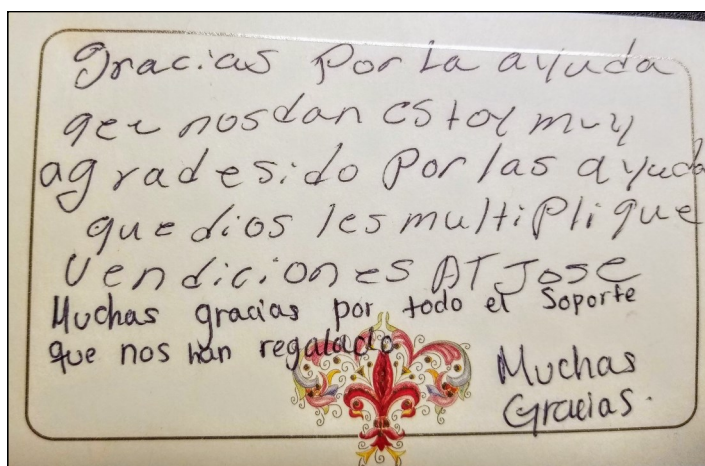 Gracias Por La ayuda
que nos dan estoy muy
agradesido Por las ayuda
que dios les multiplique
Vendiciones AT Jose
Muchas gracias por todo el Soporte
que nos han regalado
Muchas
Gracias.